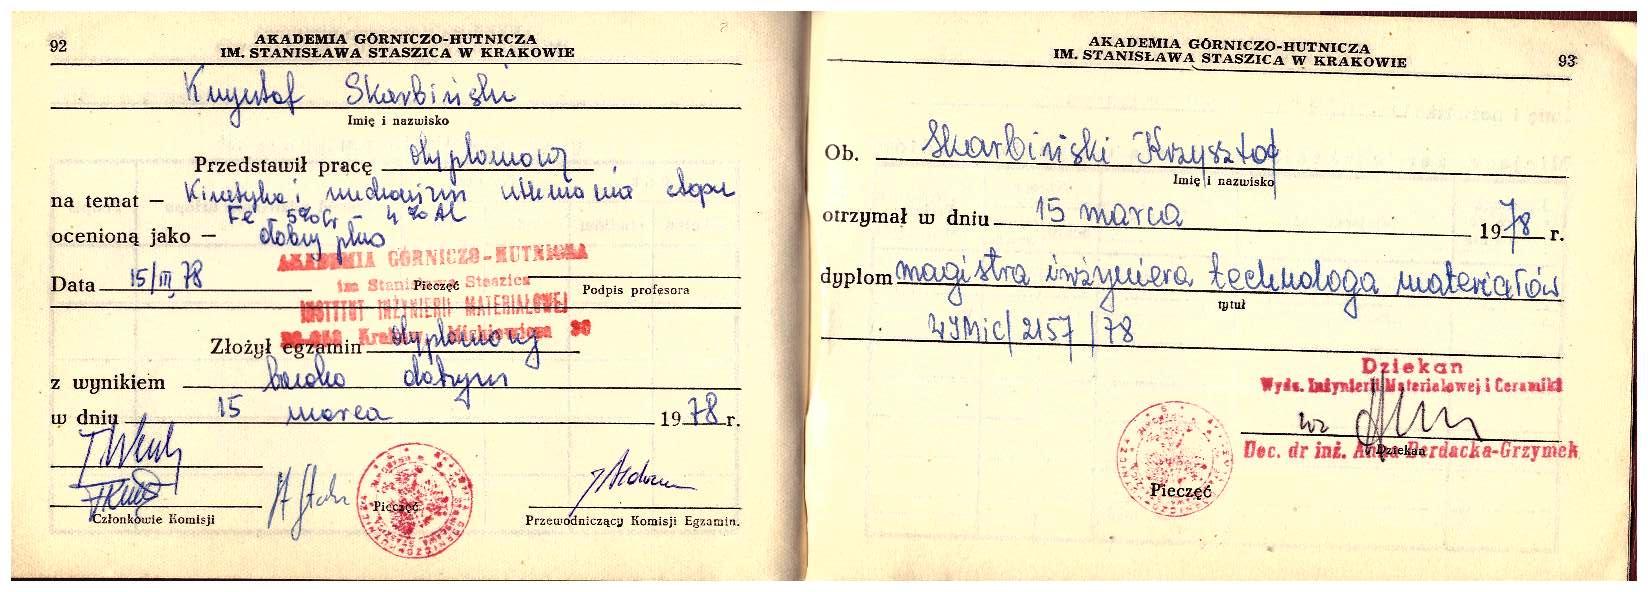 92
AKADEMIA GÓRNICZO-HUTNICZA
IM. STANISŁAWA STASZICA W KRAKOWIE
Krzysztof Skarbiński
Imię i nazwisko
Przedstawił pracę dyplomową
na temat — Kinetyka i mechanizm utleniania stopu
Fe 5% Cr - 4% Al
ocenioną jako — dobry plus
AKADEMIA GÓRNICZO-HUTNICZA
im Stanisława Staszica
INSTYTUT INŻYNIERII MATERIAŁOWEJ
Kraków Mickiewicza 30
Data 15/III 78
Pieczęć
Podpis profesora
Złożył egzamin dyplomowy
z wynikiem bardzo dobrym
w dniu 15 marca 1978 r.
Członkowie Komisji
Pieczęć
Przewodniczący Komisji Egzamin.
AKADEMIA GÓRNICZO-HUTNICZA
IM. STANISŁAWA STASZICA W KRAKOWIE
93
Ob. Skarbiński Krzysztof
Imię i nazwisko
otrzymał w dniu 15 marca 1978 r.
dyplom magistra inżyniera technologa materiałów
tytuł
WIMiC/2157/78
Dziekan
Wydz. Inżynierii Materiałowej i Ceramiki
wz
Doc. dr inż. Anna Derdacka-Grzymek
Dziekan
Pieczęć